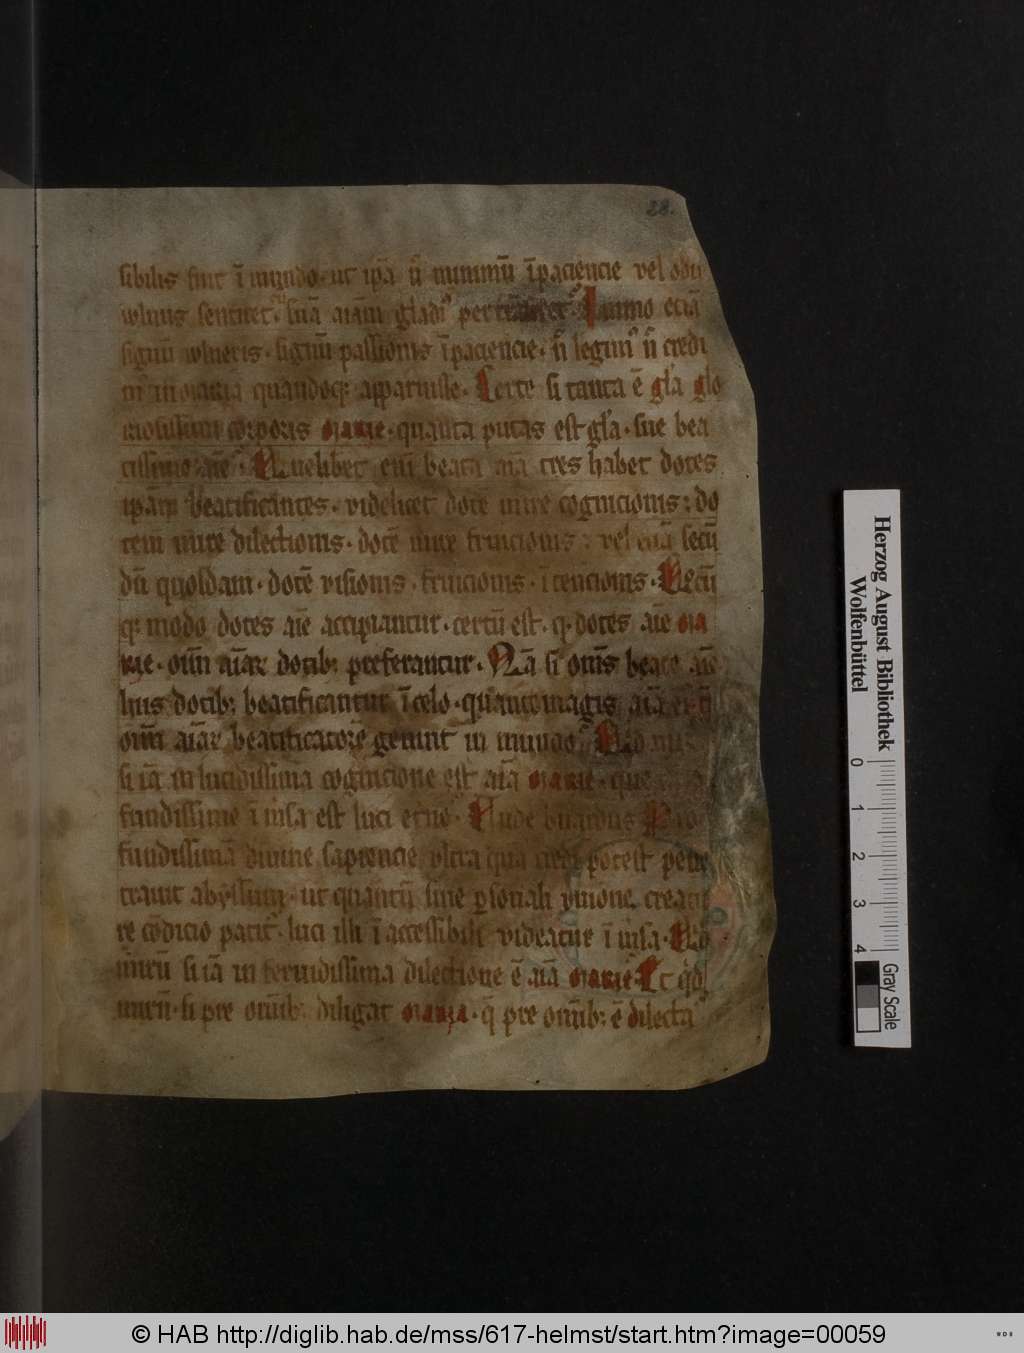 28.
sibilis fuit ī mundo · ut ipā ñ minimū īpaciencie vel odii
wlnus sentiret · suā aīam gladiꝰ pertrāsiret · Immo eciā
signū wlneris · signū passionis īpaciencie · ñ legimꝰ ñ credi
in maria quandoqꝫ apparuisse · Certe si tanta ē gl̄a glo
riosissimi corporis marie · quanta putas est gl̄a · sue bea
tissime aīe · Quelibet enī beata aīa tres habet dotes
ipām beatificantes · videlicet dotē mire cognicionis : do
tem mire dilectionis · dotē mire fruicionis : vel eciā secū
dū quosdam · dotē visionis · fruicionis · ī tencionis ·
qꝫ modo dotes aīe accipiantur · certū est · qꝫ dotes aīe ma
rie · oīm aīaꝝ dotibꝫ preferantur · Nā si om̄s beate aīe
hiis dotibꝫ beatificantur ī celo · quantomagis aīa
oīm aīaꝝ beatificatorē genuit in mundo
si iā in lucidissima cognicione est aīa marie · que
fundissime ī m̄sa est luci et̄ne · Unde bnardus Pro
fundissimā divine sapiencie vltra quā credi potest pene
travit abyssum · ut quantū sine ꝑsonali vnione creatu
re cōdicio patitꝰ · luci illi ī accessibili videatur ī m̄sa ·
mirū si iā in fervidissima dilectione ē aīa marie · Et qd̄
mirū · si pre om̄ibꝫ diligat maria · q̄ pre om̄ibꝫ ē dilecta
Herzog August Bibliothek
Wolfenbüttel
0 1 2 3 4
Gray Scale
© HAB http://diglib.hab.de/mss/617-helmst/start.htm?image=00059